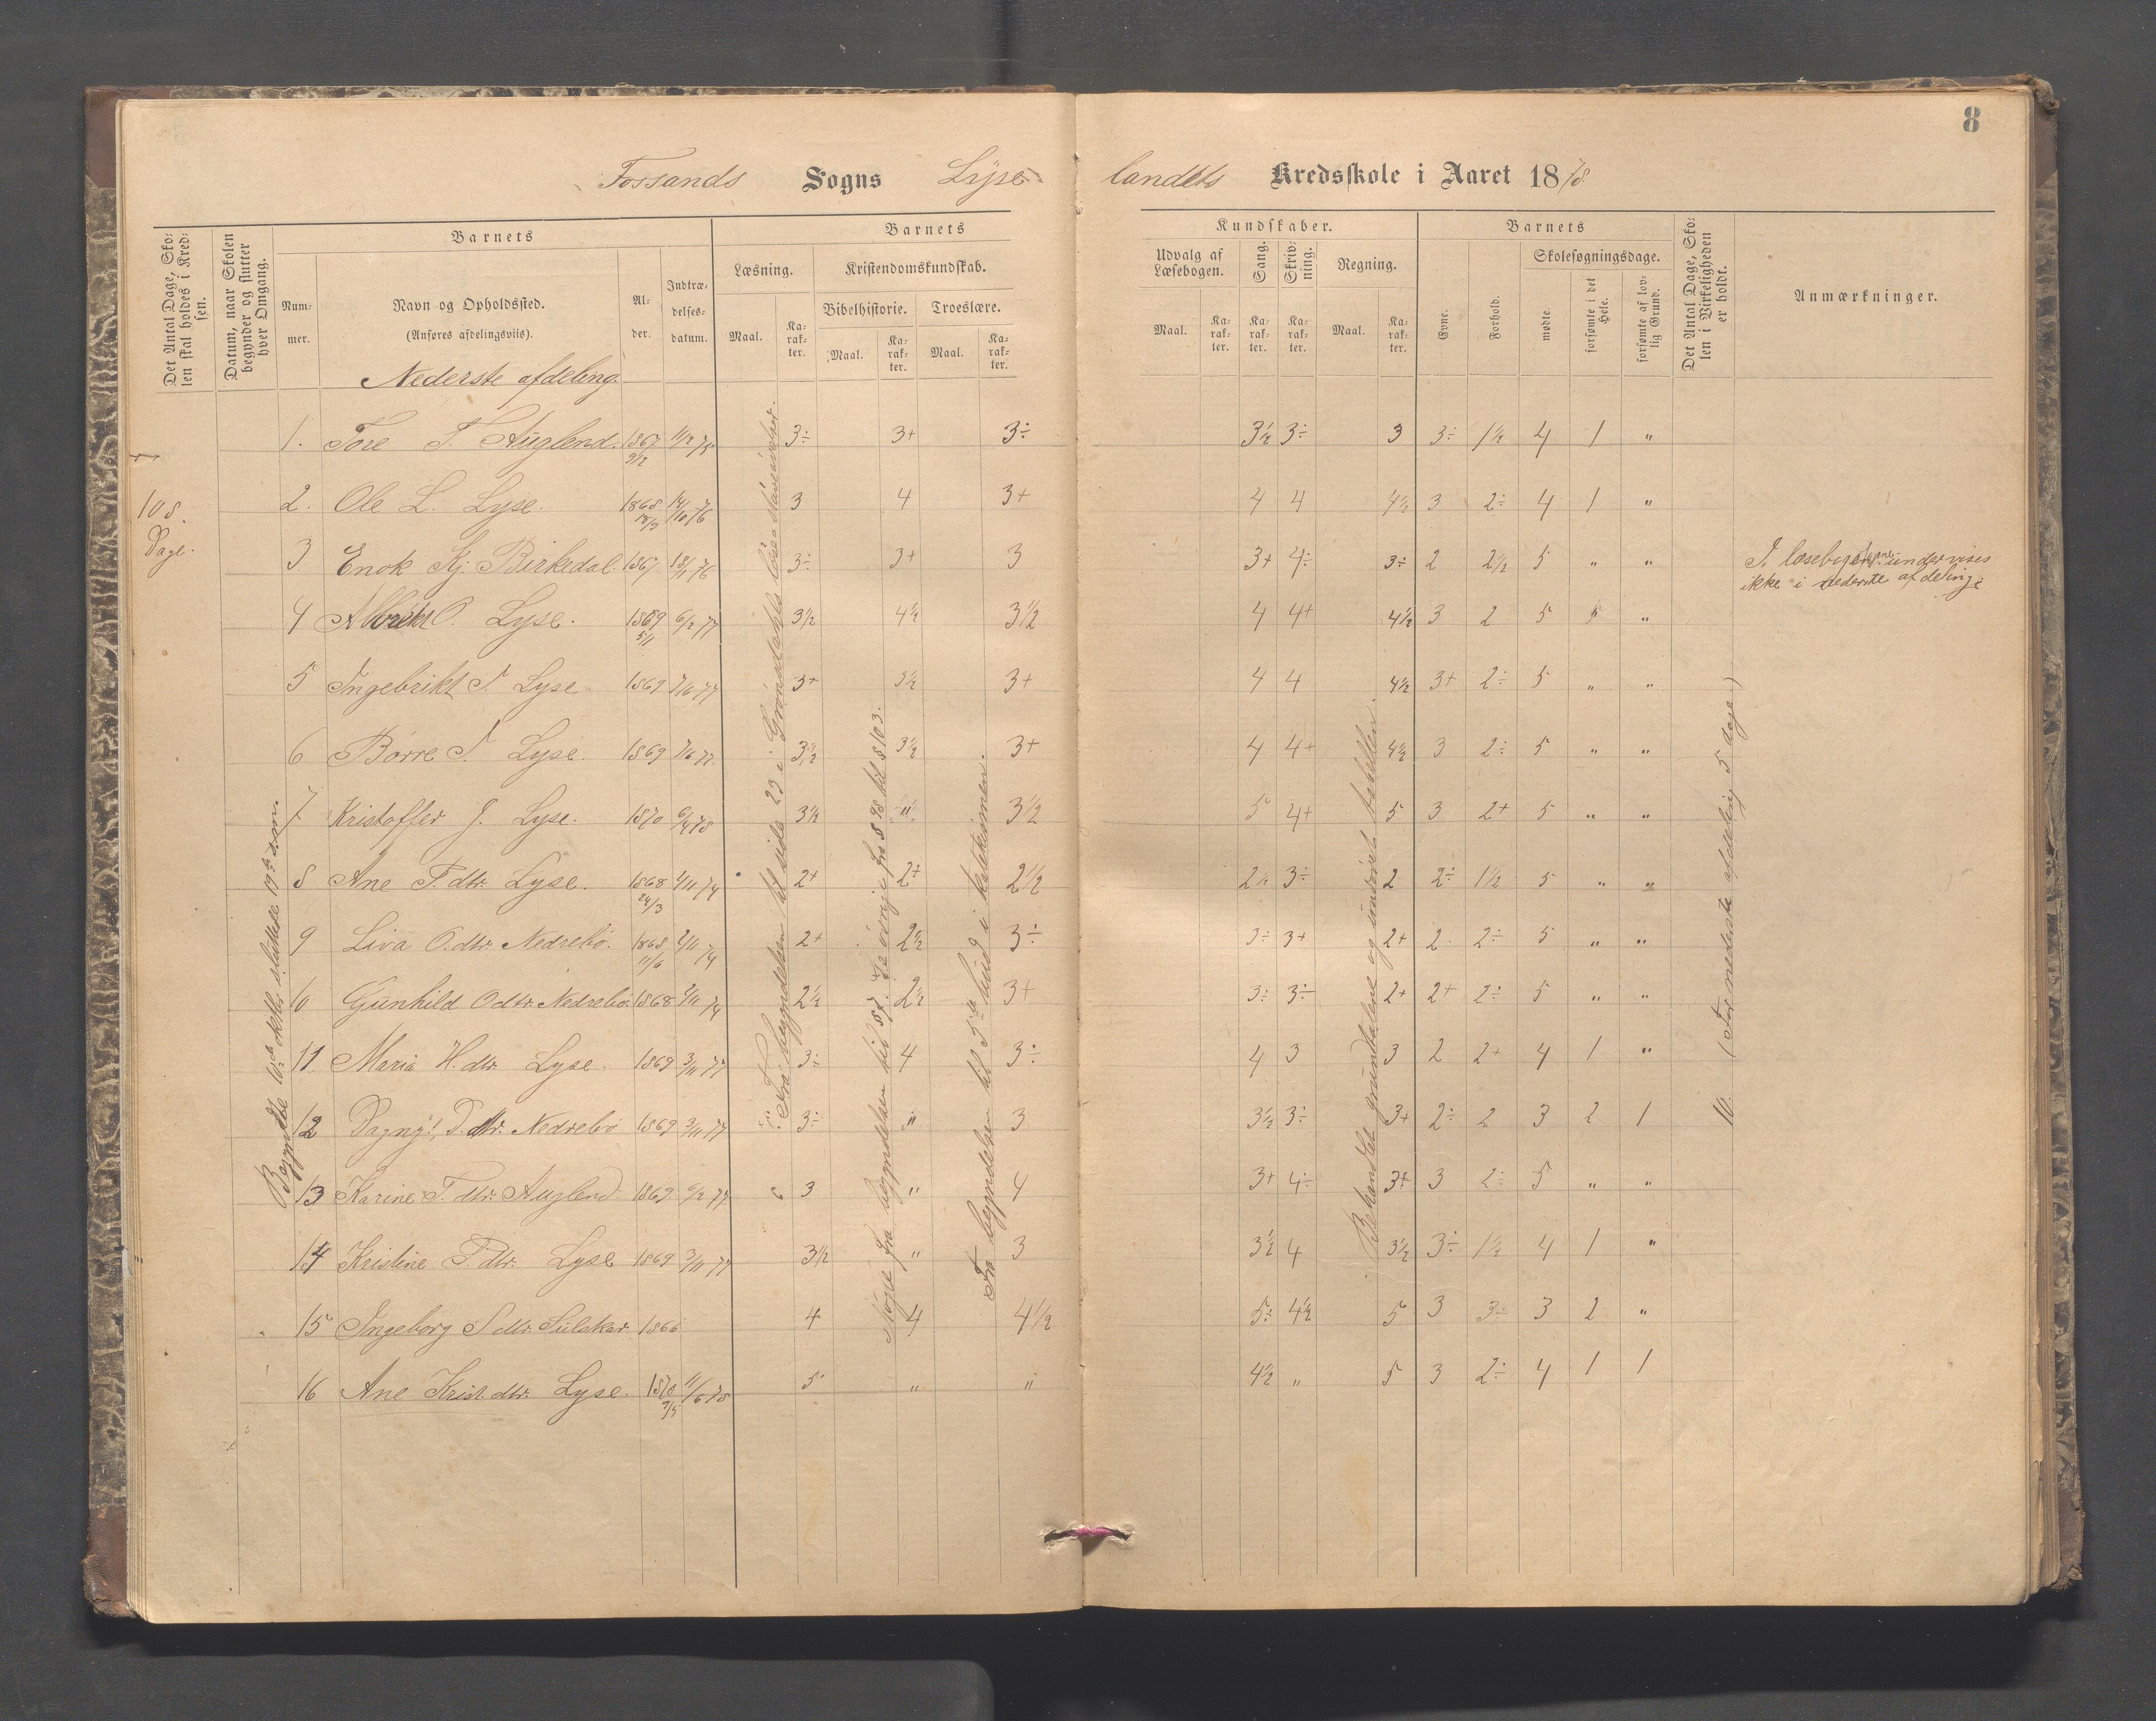 8
Fossands Sogns Lyse-
landets Kredsskole i Aaret 1878.
Det Antal Dage, Skolen skal holdes i Kredsen.
Datum, naar Skolen begynder og slutter hver Omgang.
Barnets
Nummer.
Navn og Opholdssted.
(Anføres afdelingsviis).
Alder.
Indtrædelsesdatum.
Barnets
Læsning.
Kristendomskundskab.
Bibelhistorie. Troeslære.
Maal. Karakter. Maal. Karakter. Maal. Karakter.
Kundskaber.
Udvalg af Læsebogen.
Sang. Skrivning. Regning.
Maal. Karakter. Karakter. Karakter. Maal. Karakter.
Barnets
Evne. Forhold.
Skolesøgningsdage.
mødte. forsømte i det Hele. forsømte af lovlig Grund.
Det Antal Dage, Skolen i Virkeligheden er holdt.
Anmærkninger.
Nederste afdeling.
1. Tore T. Auglend. 1867 9/12 11/2 75 3÷ 3+ 3÷ 3½ 3÷ 3 3÷ 1½ 4 1 "
108 Dage.
2. Ole L. Lyse. 1868 18/3 14/10 76 3 4 3+ 4 4 4½ 3 2÷ 4 1 "
3. Enok Kj. Birkedal 1867 18/11 76 3÷ 3+ 3 3+ 4÷ 3÷ 2 2½ 5 " "
I læsebogen undervises
ikke i nederste afdeling
4 O. Lyse. 1869 5/1 6/2 77 3½ 4½ 3½ 4 4+ 4½ 3 2 5 "
5 Ingebrikt T. Lyse. 1869 7/6 77 3+ 3½ 3+ 4 4 4½ 3+ 2÷ 5 " "
6 Børre T. Lyse. 1869 7/6 77. 3½ 3½ 3+ 4 4+ 4½ 3 2÷ 5 " "
7. Kristoffer J. Lyse. 1870 6/4 78 3½ " 3½ 5 4+ 5 3 2+ 5 " "
8 Ane T. dtr. Lyse. 1868 24/3 2/11 74 2+ 2+ 2½ 2½ 3÷ 2 2÷ 1½ 5 " "
9 Liva O. dtr. Nedrebø. 1868 11/6 2/11 74 2+ 2½ 3÷ 3÷ 3+ 2+ 2 2÷ 5 " "
10 Gunhild O dtr. Nedrebø 1868 2/11 74 2½ 2½ 3+ 3÷ 3÷ 2+ 2+ 2÷ 5 " "
11 Maria H. dtr. Lyse. 1869 3/11 77 3÷ 4 3÷ 4 3 3 2 2+ 4 1 "
12 Dagny P. dtr. Nedrebø 1869 3/11 77 3÷ " 3 3½ 3÷ 3+ 2÷ 2 3 2 1
13 Karine T. dtr. Auglend 1869 6/2 77 3 " 4 3+ 4÷ 3+ 3 2÷ 5 " "
14 Kristine P. dtr. Lyse 1869 3/11 77 3½ " 3 3½ 4 3½ 3÷ 1½ 4 1 "
15 Ingeborg S dtr. 1866 4 4 4½ 5÷ 4½ 5 3 3÷ 3 2 "
16 Ane Krist. dtr. Lyse. 1870 7/5 11/6 78 5 " " 4½ " 5 3 2÷ 4 1 1
Begyndte 10de oktbr. sluttede 19de s.m.
Fra begyndelsen til side 23 i Grøndahls
fra begyndelsen til § 7. De øvrige fra § 98 til § 103.
Fra begyndelsen til 5te bud i katekismen.
Behandlet grundtallene og indøvet tabellen.
10. (For nederste afdeling 5 dage.)